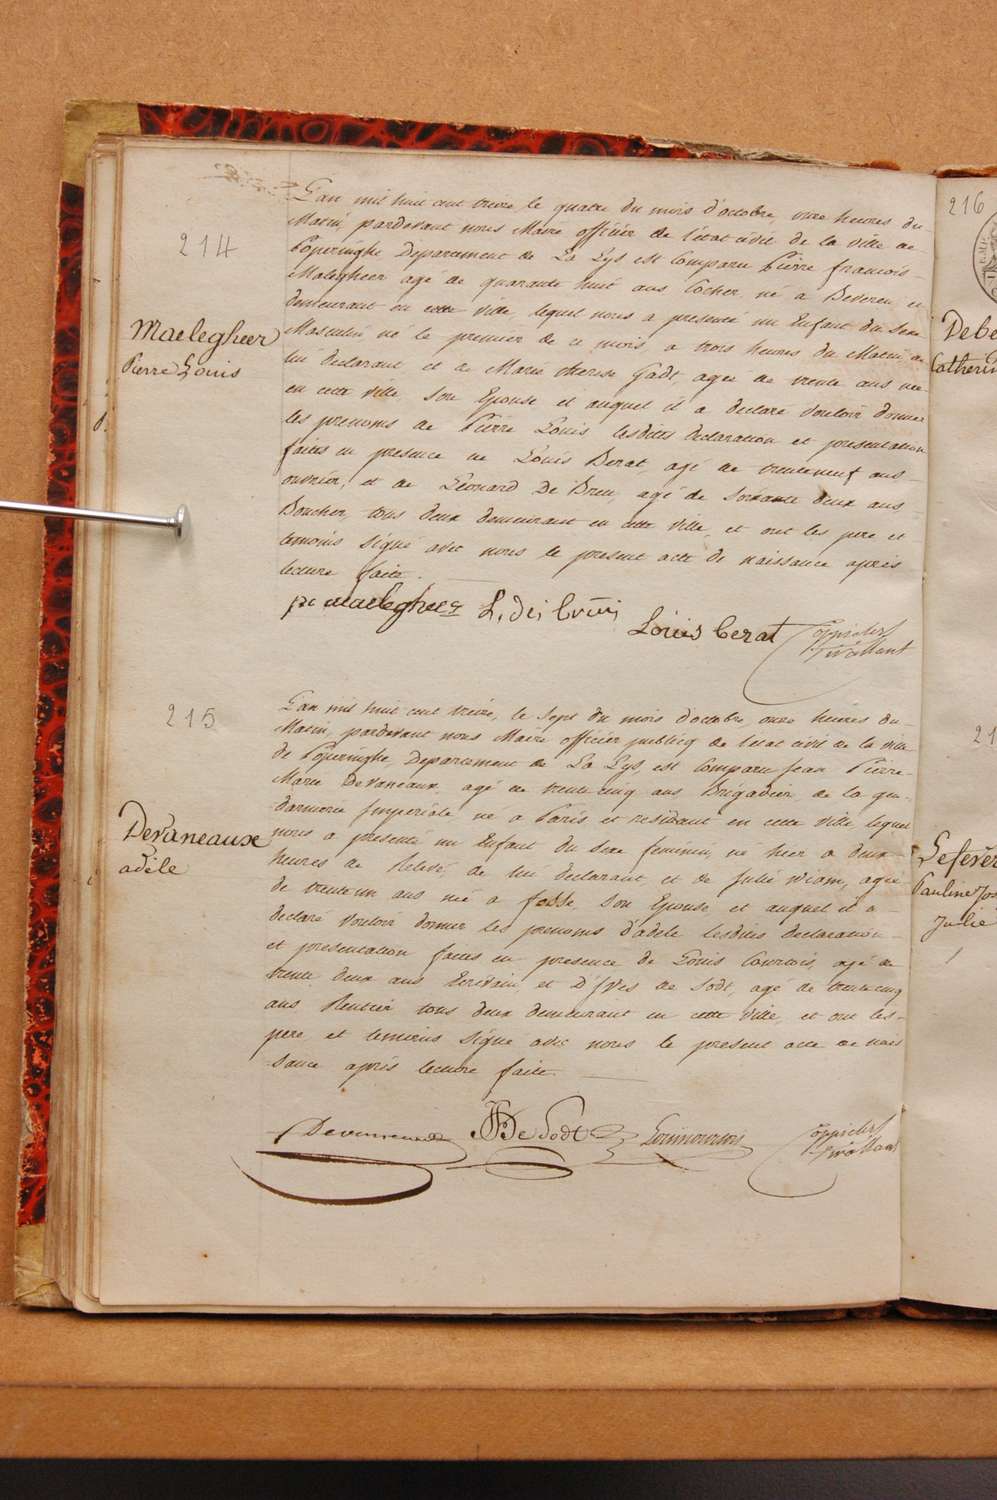 214
Maelegheer
Pierre Louis
L'an mil huit cent treize le quatre du mois d'octobre, onze heures du
Matin, pardevant nous Maire officier de l'état civil de la ville de
Poperinghe Departement de La Lys est Comparu Pierre francois
Malegheer agé de quarante huit ans Cocher, né a Beveren et
demeurant en cette ville, lequel nous a presenté un Enfant du Sexe
Masculin né le premier de ce mois a trois heures du Matin de
lui declarant, et de Marie therese Gadt, agée de trente ans née
en cette ville, Son Epouse et auquel il a declaré vouloir donner
les prenoms de Pierre Louis lesdites declaration et presentation
faites en presence de Louis Berat, agé de trenteneuf ans
ouvrier, et de Léonard De Breu, agé de Soixante deux ans
Boucher, tous deux demeurant en cette ville, et ont les pere et
temoins signé avec nous le present acte de naissance après
lecture faite.
pr maelegheer L. de Louis berat
215
Devaneaux
adèle
L'an mil huit cent treize, le Sept du mois d'octobre, onze heures du
Matin, pardevant nous Maire officier publicq de l'etat civil de la ville
de Poperinghe, Departement de La Lys, est Comparu Jean Pierre
Marie Devaneaux agé de trente cinq ans Brigadier de la gen-
darmerie Imperiale né a Paris et residant en cette ville lequel
nous a presenté un Enfant du Sexe feminin, né hier a deux
heures de Relevé, de lui declarant et de Julie agée
de trente un ans née a fosse Son Epouse, et auquel il a
declaré vouloir donner les prenoms d'adele lesdites declaration
et presentation faites en presence de Louis Courtois, agé de
trente deux ans Ecrivain, et D'Yves de Sodt, agé de trente cinq
ans Rentier tous deux demeurant en cette ville, et ont les
pere et temoins signé avec nous le present acte de nais
sance après lecture faite.
Devaneaux De Sodt
216
Debe
Catherin
21
Lefever
Pauline Jos
Julie